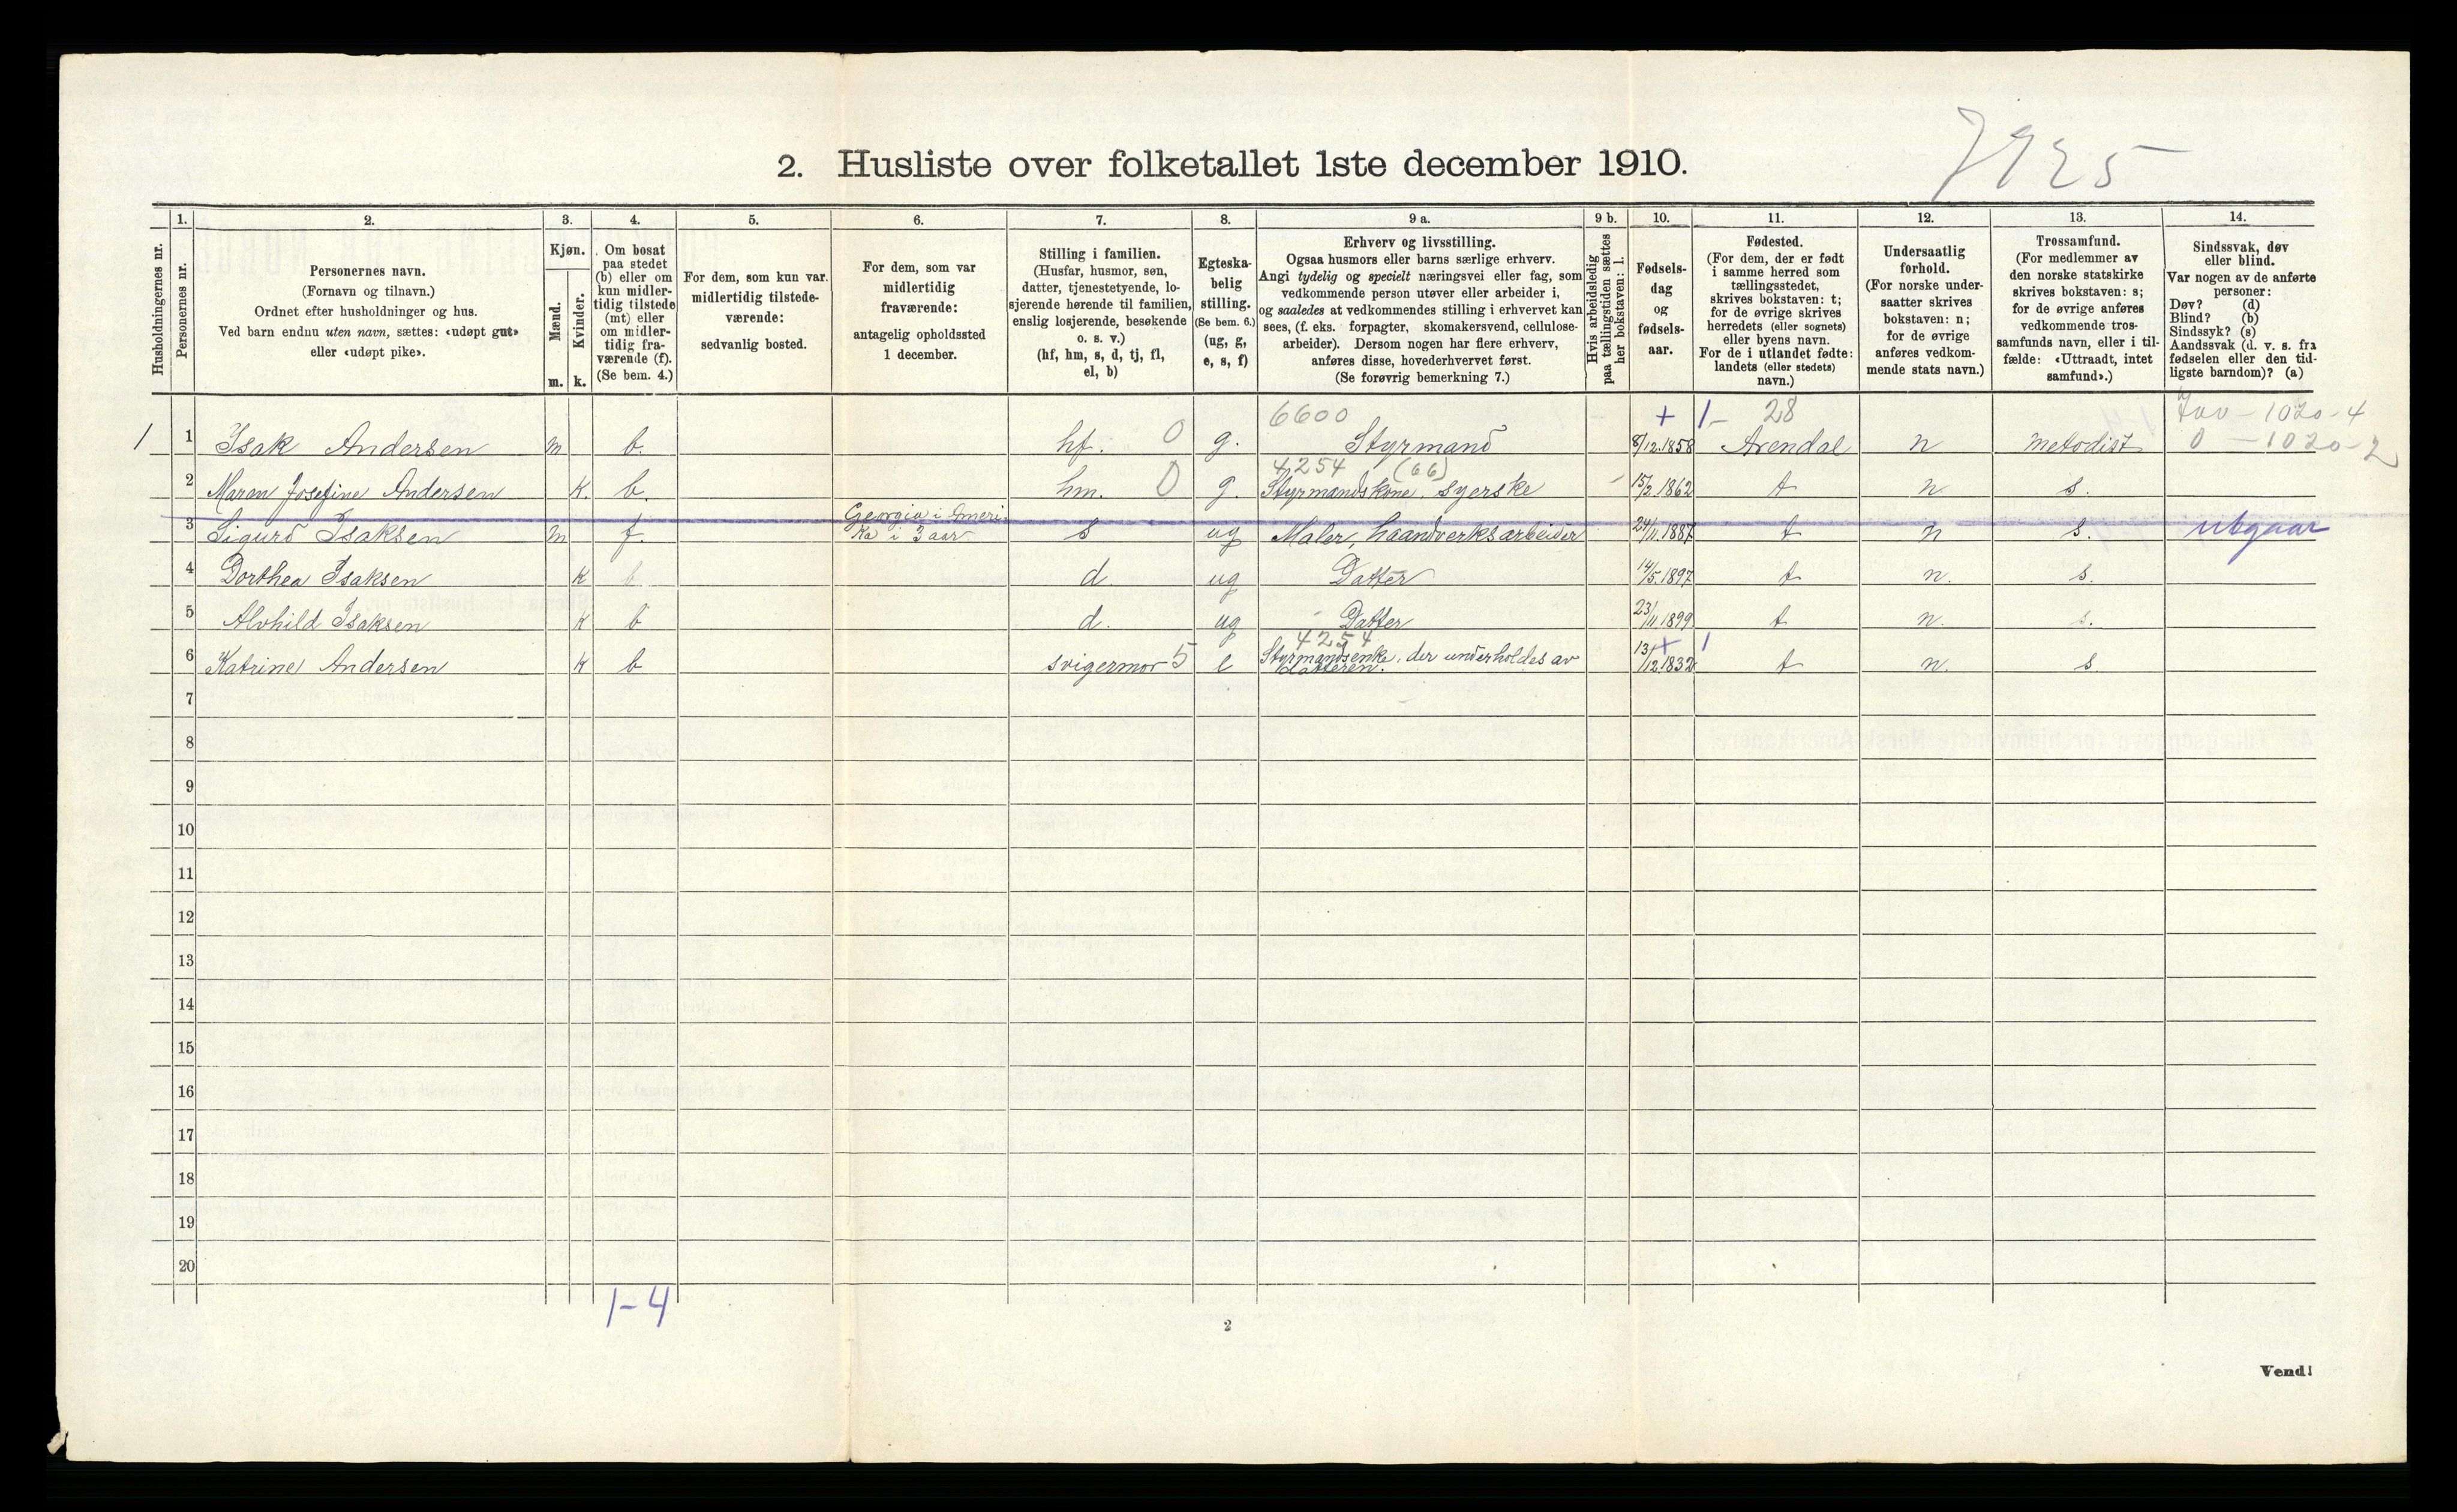 7925
2. Husliste over folketallet 1ste december 1910.
Husholdningernes nr.
1.
Personernes nr.
2.
Personernes navn.
(Fornavn og tilnavn.)
Ordnet efter husholdninger og hus.
Ved barn endnu uten navn, sættes: «udøpt gut»
eller «udøpt pike».
3.
Kjøn.
Mænd.
m.
Kvinder.
k.
4.
Om bosat
paa stedet
(b) eller om
kun midler-
tidig tilstede
(mt) eller
om midler-
tidig fra-
værende (f).
(Se bem. 4.)
5.
For dem, som kun var
midlertidig tilstede-
værende:
sedvanlig bosted.
6.
For dem, som var
midlertidig
fraværende:
antagelig opholdssted
1 december.
7.
Stilling i familien.
(Husfar, husmor, søn,
datter, tjenestetyende, lo-
sjerende hørende til familien,
enslig losjerende, besøkende
o. s. v.)
(hf, hm, s, d, tj, fl,
el, b)
8.
Egteska-
belig
stilling.
(Se bem. 6.)
(ug, g,
e, s, f)
9 a.
Erhverv og livsstilling.
Ogsaa husmors eller barns særlige erhverv.
Angi tydelig og specielt næringsvei eller fag, som
vedkommende person utøver eller arbeider i,
og saaledes at vedkommendes stilling i erhvervet kan
sees, (f. eks. forpagter, skomakersvend, cellulose-
arbeider). Dersom nogen har flere erhverv,
anføres disse, hovederhvervet først.
(Se forøvrig bemerkning 7.)
9 b.
Hvis arbeidsledig
paa tællingstiden sættes
her bokstaven: l.
10.
Fødsels-
dag
og
fødsels-
aar.
11.
Fødested.
(For dem, der er født
i samme herred som
tællingsstedet,
skrives bokstaven: t;
for de øvrige skrives
herredets (eller sognets)
eller byens navn.
For de i utlandet fødte:
landets (eller stedets)
navn.)
12.
Undersaatlig
forhold.
(For norske under-
saatter skrives
bokstaven: n;
for de øvrige
anføres vedkom-
mende stats navn.)
13.
Trossamfund.
(For medlemmer av
den norske statskirke
skrives bokstaven: s;
for de øvrige anføres
vedkommende tros-
samfunds navn, eller i til-
fælde: «Uttraadt, intet
samfund».)
14.
Sindssvak, døv
eller blind.
Var nogen av de anførte
personer:
Døv? (d)
Blind? (b)
Sindssyk? (s)
Aandssvak (d. v. s. fra
fødselen eller den tid-
ligste barndom)? (a)
6600 + 1- 28 - 1020-4
1 1 Isak Andersen m b. hf. 0 g. Styrmand 8/12.1858 Arendal n Metodist 0 - 1020-2
4254 (66)
2 Maren Josefine Andersen K. b. hm. 0 g. Styrmandskone, syerske 15/2.1862 t n s.
Georgia i Ameri-
3 Sigurd Isaksen m f. ka i 3 aar s ug Maler, haandverksarbeider 24/11.1887 t n s. utgaar
4 Dorthea Isaksen K b d ug Datter 14/5.1897 t n. s.
5 Alvhild Isaksen K b d. ug Datter 23/11.1899 t n. s.
4254 + 1
6 Katrine Andersen K b svigermor 5 e Styrmandsenke, der underholdes av 13/12.1832 t n. s
datteren.
7
8
9
10
11
12
13
14
15
16
17
18
19
20
1-4
2
Vend!